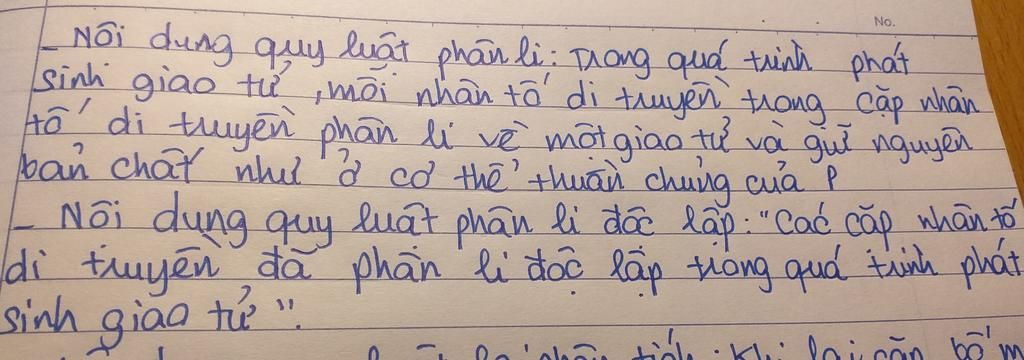 No.
- Nội dung quy luật phân li: Trong quá trình phát
sinh giao tử, mỗi nhân tố di truyền trong cặp nhân
tố di truyền phân li về một giao tử và giữ nguyên
bản chất như ở cơ thể thuần chủng của P
- Nội dung quy luật phân li độc lập: "Các cặp nhân tố
di truyền đã phân li độc lập trong quá trình phát
sinh giao tử".